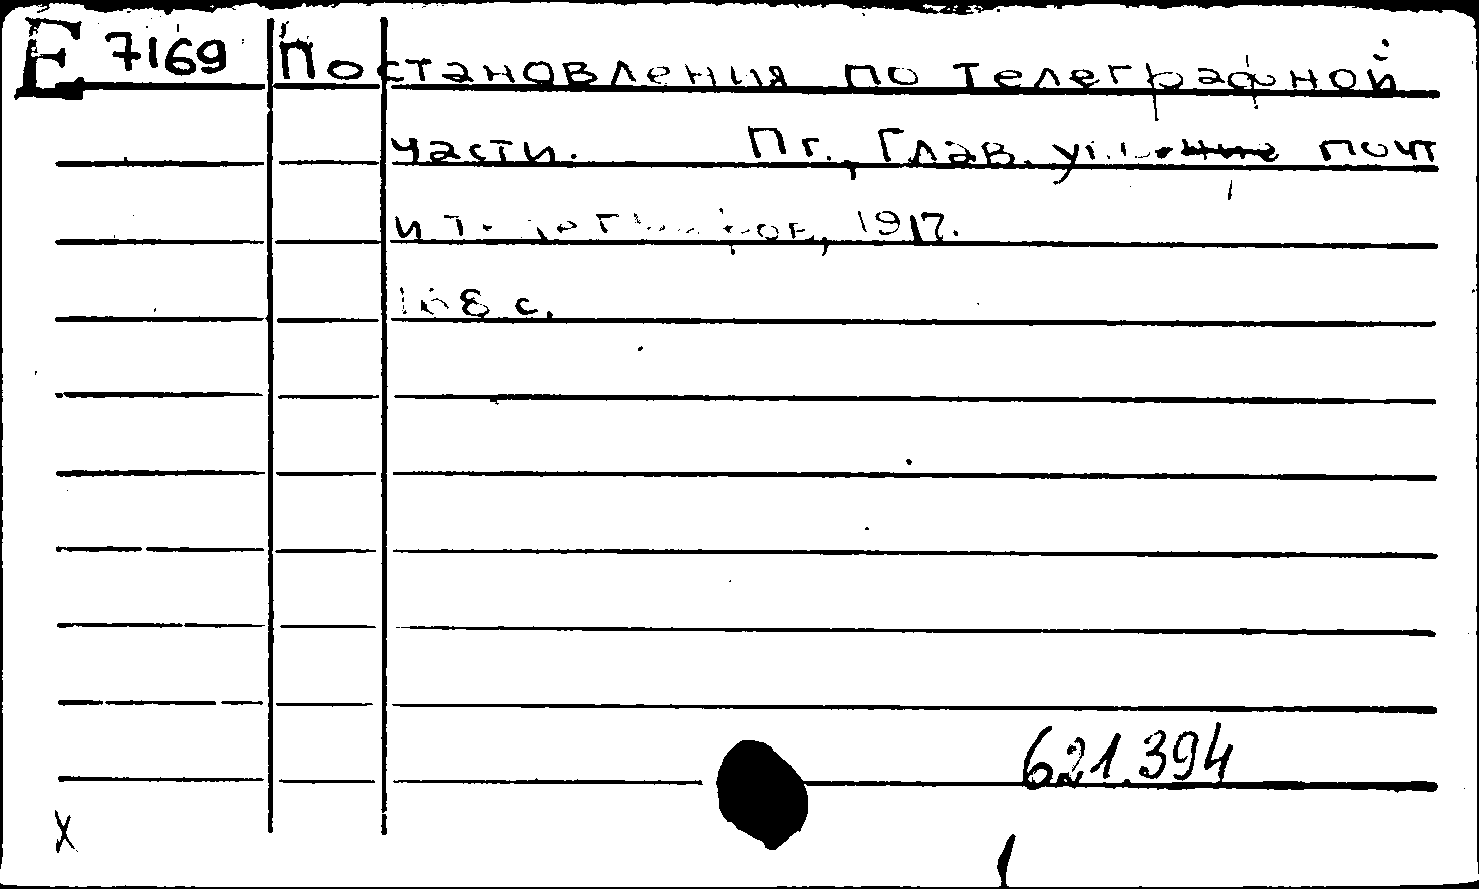 E 7169 Постановления по телеграфной
части. Пг., Глав. почт
и 1917.
с.
621.394
x